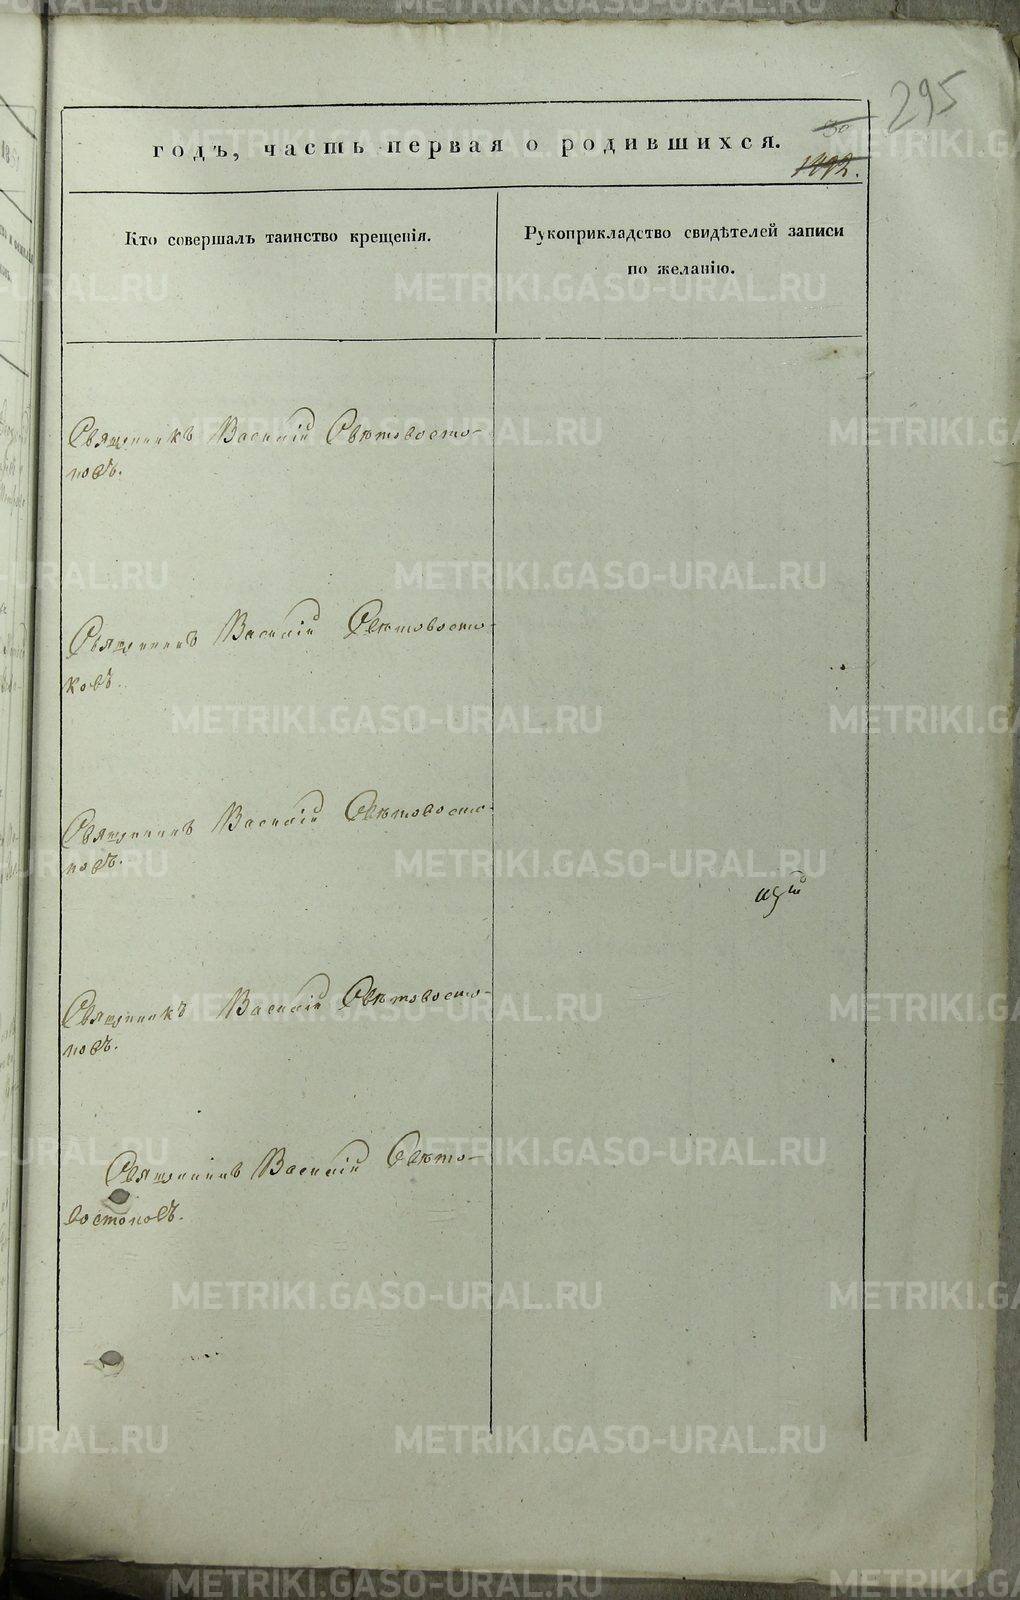 295
30
годъ, часть первая о родившихся.
1092.
Кто совершалъ таинство крещенія.
Рукоприкладство свидѣтелей записи
по желанію.
Священникъ Василій Свѣтовосто-
ковъ.
Священникъ Василій Свѣтовосто-
ковъ.
Священникъ Василій Свѣтовосто-
ковъ.
Священникъ Василій Свѣтовосто-
ковъ.
Священникъ Василій Свѣто-
востоковъ.
METRIKI.GASO-URAL.RU